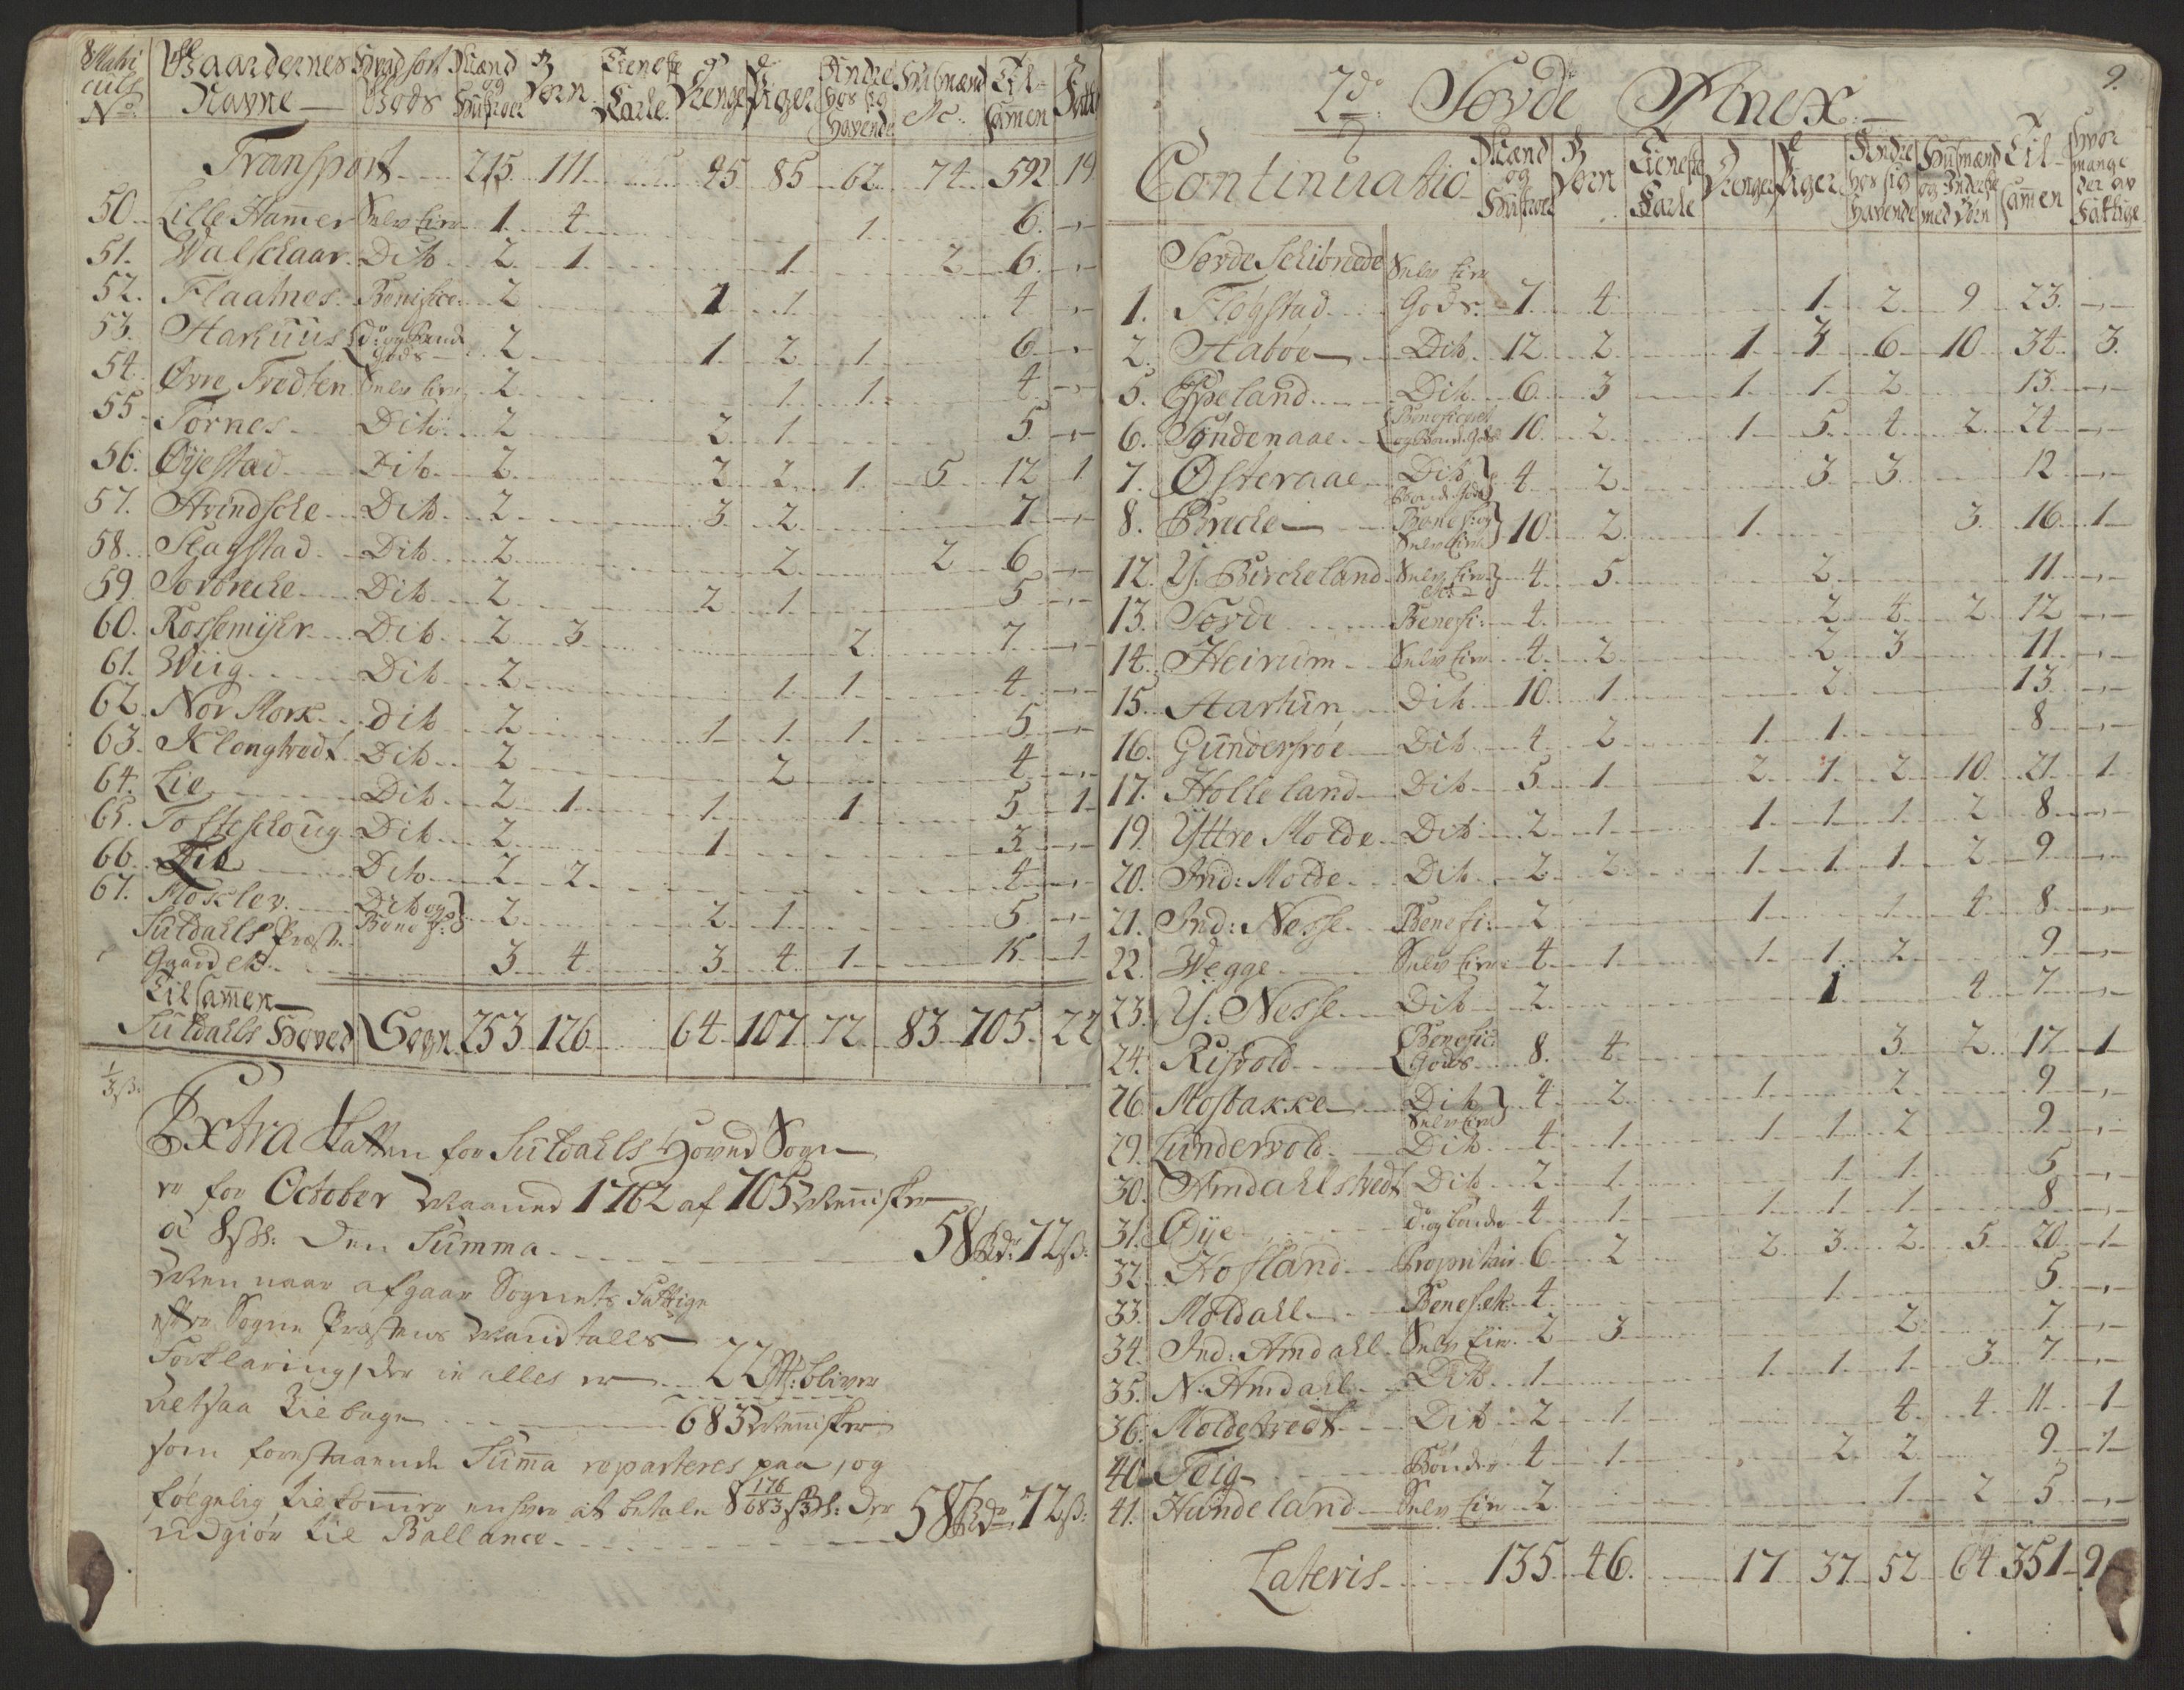 Matri Gaardernes Hvad sort Mænd Børn Tieneste Drenge Piger Andre Husmænd Til= Fatt
culs Navne Gods og Karle hos sig etc. samen
No Hustroer havende
Transport 215 111 45 85 62 74 592 19
50. Lille Hamer Selv Eier 1 4 1 6 –,–
51. Walschaar Dito 2 1 1 2 6 –,–
52. Flaatnes Benifice 2 1 1 4 –,–
53. Harhuus do og Bonde Gods 2 1 2 1 6 –,–
54. Øvre Tvedten Selv Eier 2 1 1 4 –,–
55. Tornes Dito 2 2 1 5 –,–
56. Øyestad Dito 2 2 2 1 5 12 1
57. Hvindsche Dito 2 3 2 7 –,–
58. Slagstad Dito 2 2 2 6 –,–
59. Sorbreche Dito 2 2 1 5 –,–
60. Rossemyhr Dito 2 3 2 7 –,–
61. Wiig Dito 2 1 1 4 –,–
62. Nor Mork Dito 2 1 1 1 5 –,–
63. Klongtvedt Dito 2 2 4 –,–
64. Lie Dito 2 1 1 1 5 1
65. Tofteschoug Dito 2 1 3 –,–
66. Lie Dito 2 2 4 –,–
67. Mosklev Dito og Benef: 2 2 1 5 –,–
Suldahls Præste
Gaard etc. 3 4 3 4 1 15 1
Tilsamen
Suldahls Hoved Sogn 253 126 64 107 72 83 705 22
Extra Skatten for Suldahls Hoved Sogn
er for October Maaned 1762 af 705 Mennisker
a 8 sk: Den Summa 58 Rdr 72 s:
Men naar afgaar Sognets Fattige
efter Sogne Præstens Mandtalls
Forklaring, der in alles er 22 St: bliver
netsaa tilbage 683 Mennisker
som forestaaende Suma reparteres paa, og
følgelig tilkomer enhver at betale 8 176/683 s: Der
udgiør til Ballance 58 Rdr 72 s:
9.
2do Sovde Anex.
Continuatio Mænd og Hustroer Børn Tieneste Karle Drenge Piger Andre hos sig havende Husmænd og Inderste med Børn Til samen Hvor mange der er Fattige
Sovde Schibrede
1. Fløgstad Selv Eier Gods 7 4 1 2 9 23 –,–
2. Haboe Dito 12 2 1 3 6 10 34 3
5. Espeland Dito 6 3 1 1 2 13 –,–
6. Søndenaae Beneficeret og Bonde Gods 10 2 1 5 4 2 24 –,–
7. Østeraae Dito Bonde Gods 4 2 3 3 12 –,–
8. Breche Benef: og Selv Eier 10 2 1 3 16 1
12. Y. Bircheland Selv Eier etc. 4 5 2 11 –,–
13. Sovde Benefi: 4 2 4 2 12 –,–
14. Heirum Selv Eier 4 2 2 3 11 –,–
15. Harhun Dito 10 1 2 13 –,–
16. Gundersrøe Dito 4 2 1 1 8 –,–
17. Holleland Dito 5 1 2 1 2 10 21 1
19. Yttre Molde Dito 2 1 1 1 1 2 8 –,–
20. Ind: Molde Dito 2 2 1 1 1 2 9 –,–
21. Ind: Nesse Benefi: 2 1 1 4 8 –,–
22. Wegge Selv Eier 4 1 1 1 2 9 –,–
23. Y. Nesse Dito 2 1 4 7 –,–
24. Risvold Benefic: Gods 8 4 3 2 17 1
26. Mostakke Dito Selv Eier 4 2 1 2 9 –,–
29. Lundervold Dito 4 1 1 1 2 9 –,–
30. Amdahlstvedt Dito 2 1 1 1 5 –,–
31. Øye do og bonde 4 1 1 1 1 8 –,–
32. Hofland Proprietair 6 2 2 3 2 5 20 1
33. Moldahl Benef: etc. 4 1 5 –,–
34. Ind: Amdahl Selv Eier 2 3 2 7 –,–
35. N: Amdahl Dito 1 1 1 1 3 7 –,–
36. Moldetvedt Dito 2 1 4 4 11 1
40. Teig Bonde 4 1 2 2 9 1
41. Hundeland Selv Eier 2 1 2 5 –,–
Lateris 135 46 17 37 52 64 351 9